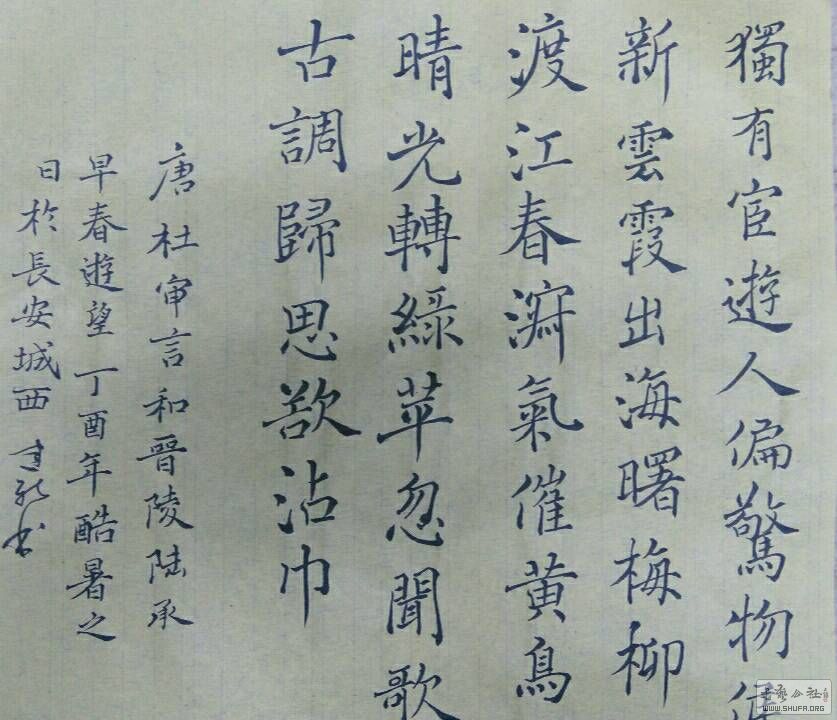 獨有宦遊人偏驚物候
新雲霞出海曙梅柳
渡江春淑氣催黄鳥
晴光轉綠苹忽聞歌
古調歸思欲沾巾
唐杜审言和晉陵陸承
早春遊望丁酉年酷暑之
日於長安城西书
书艺公社
WWW.SHUFA.ORG